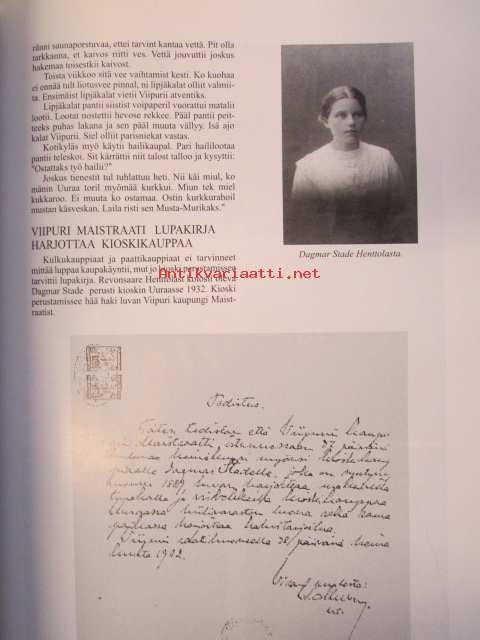 ränni saunaporstuvaa, ettei tarvint kantaa vettä. Pit olla
tarkkanna, et kaivos riitti ves. Vettä jouvuttii joskus
hakemaa toisestkii kaivost.
Toista viikkoo sitä vee vaihtamist kesti. Ko kuohaa
ei ennää tult liotusvee pinnal, ni lipjäkalat olliit valmii-
ta. Ensimäist lipjäkalat vietii Viipurii atventiks.
Lipjäkalat pantii siistist voipaperil vuorattui matalii
lootii. Lootat nostettii hevose rekkee. Pääl pantii peit-
teeks puhas lakana ja sen pääl muuta vällyy. Isä ajo
kalat Viipurii. Siel olliit parisniekat vastas.
Kotikyläs myö käytii hailikaupal. Pari haililootaa
pantii teleskoi. Sit kärrättii niit talost talloo ja kysyttii:
"Ostattaks työ hailii?"
Joskus tienestit tul tuhlattuu heti. Nii käi miul, ko
mänin Uuraa toril myömää kurkkui. Miun tek miel
kukkaroo. Ei muuta ko ostamaa. Ostin kurkkurahoil
mustan käsveskan. Laila risti sen Musta-Murikaks."
VIIPURI MAISTRAATI LUPAKIRJA
HARJOTTAA KIOSKIKAUPPAA
Kulkukauppiaat ja paattikauppiaat ei tarvinneet
mittää luppaa kaupakäyntii, mut jo kioski perustamissee
tarvittii lupakirja. Revonsaare Henttolast kotost oleva
Dagmar Stade perusti kioskin Uuraasse 1932. Kioski
perustamissee hää haki luvan Viipuri kaupungi Maist-
raatist.
Dagmar Stade Henttolasta.
Antikvariaatti.net
http://www.antikvariaatti.net
Todistus.
Täten todistan että Viipurin kaupun-
gin Maistraatti, istunnossaan 27 päivänä
Dagmar Stadelle, joka on syntynyt
vuonna 1889 luvan harjoittaa
kioskikauppaa
Viipurin raatihuoneella 28 päivänä heinä-
kuuta 1932.
Viran puolesta: